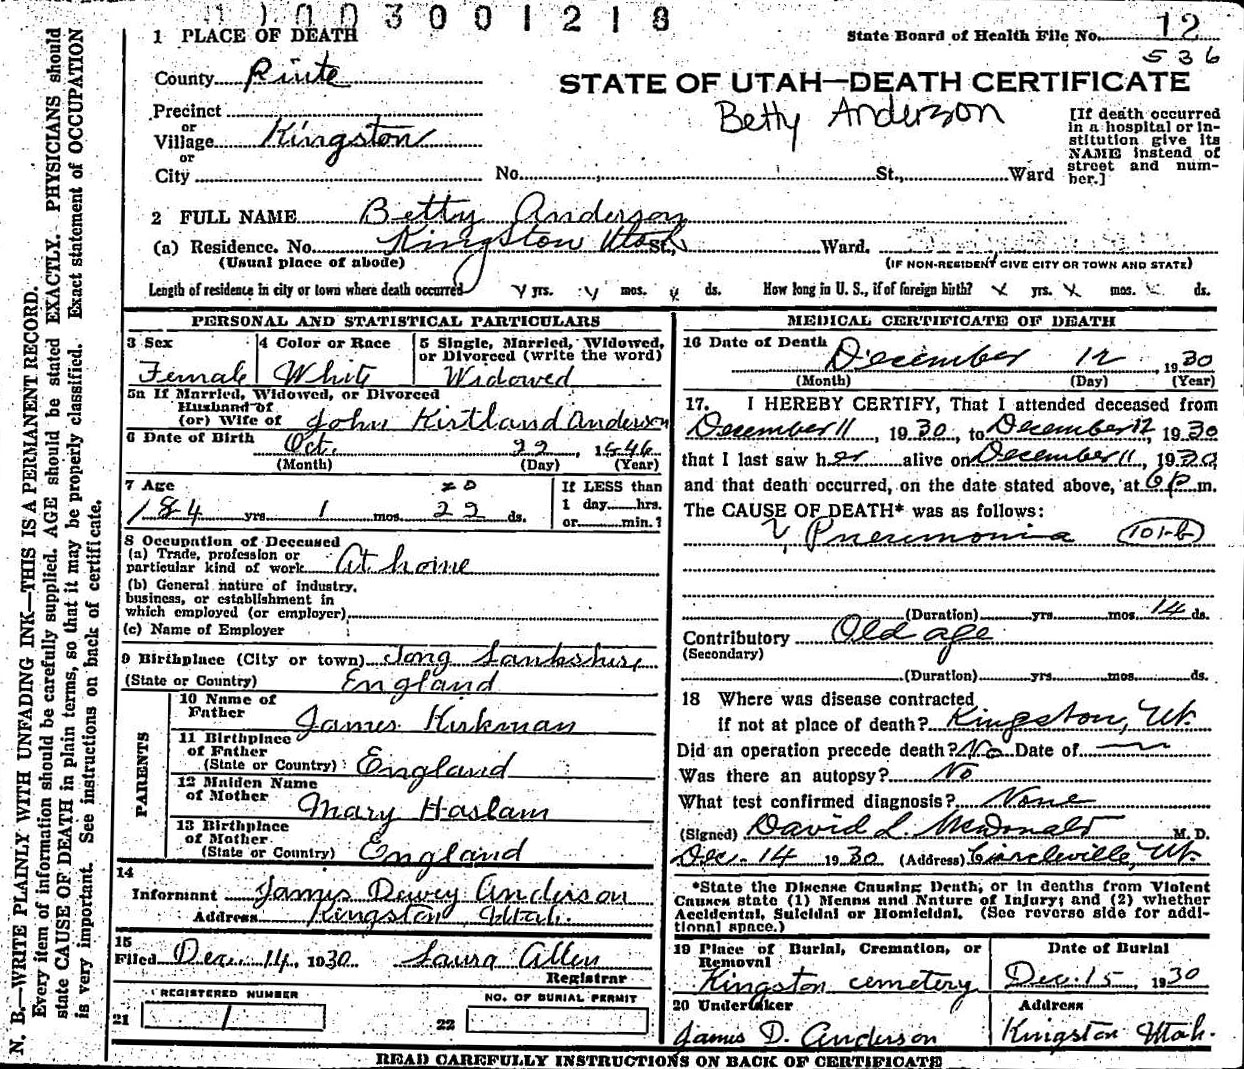 1003001218
1 PLACE OF DEATH
State Board of Health File No. 12
536
County Piute
STATE OF UTAH—DEATH CERTIFICATE
Betty Anderson
Precinct
or
Village Kingston
or
City No. St., Ward
[If death occurred
in a hospital or in-
stitution give its
NAME instead of
street and num-
ber.]
2 FULL NAME Betty Anderson
(a) Residence. No. Kingston Utah St., Ward.
(Usual place of abode)
(IF NON-RESIDENT GIVE CITY OR TOWN AND STATE)
Length of residence in city or town where death occurred yrs. mos. ds. How long in U. S., if of foreign birth? x yrs. x mos. x ds.
PERSONAL AND STATISTICAL PARTICULARS
3 Sex
Female
4 Color or Race
White
5 Single, Married, Widowed,
or Divorced (write the word)
Widowed
5a If Married, Widowed, or Divorced
Husband of
(or) Wife of John Kirtland Anderson
6 Date of Birth Oct. 22, 1846
(Month) (Day) (Year)
7 Age
20
84 yrs. 1 mos. 22 ds.
If LESS than
1 day hrs.
or min.?
8 Occupation of Deceased
(a) Trade, profession or
particular kind of work At home
(b) General nature of industry,
business, or establishment in
which employed (or employer)
(c) Name of Employer
9 Birthplace (City or town) Tong Lankshire
(State or Country) England
PARENTS
10 Name of
Father James Kirkman
11 Birthplace
of Father
(State or Country) England
12 Maiden Name
of Mother Mary Haslam
13 Birthplace
of Mother
(State or Country) England
14
Informant James Dewey Anderson
Address Kingston Utah.
15
Filed Dec. 14, 1930 Laura Allen
Registrar
REGISTERED NUMBER
21 1
NO. OF BURIAL PERMIT
22
MEDICAL CERTIFICATE OF DEATH
16 Date of Death December 12, 1930
(Month) (Day) (Year)
17. I HEREBY CERTIFY, That I attended deceased from
December 11, 1930, to December 12, 1930
that I last saw her alive on December 11, 1930,
and that death occurred, on the date stated above, at 6 p.m.
The CAUSE OF DEATH* was as follows:
Pneumonia 101-b
(Duration) yrs. mos. 14 ds.
Contributory Old age
(Secondary)
(Duration) yrs. mos. ds.
18 Where was disease contracted
if not at place of death? Kingston, Ut.
Did an operation precede death? No Date of
Was there an autopsy? No
What test confirmed diagnosis? None
(Signed) David L. McDonald M. D.
Dec. 14 1930 (Address) Circleville, Ut.
*State the Disease Causing Death, or in deaths from Violent
Causes state (1) Means and Nature of Injury; and (2) whether
Accidental, Suicidal or Homicidal. (See reverse side for addi-
tional space.)
19 Place of Burial, Cremation, or
Removal
Kingston cemetery
Date of Burial
Dec. 15, 1930
20 Undertaker
James D. Anderson
Address
Kingston Utah.
READ CAREFULLY INSTRUCTIONS ON BACK OF CERTIFICATE
N. B.—WRITE PLAINLY WITH UNFADING INK—THIS IS A PERMANENT RECORD.
Every item of information should be carefully supplied. AGE should be stated EXACTLY. PHYSICIANS should
state CAUSE OF DEATH in plain terms, so that it may be properly classified. Exact statement of OCCUPATION
is very important. See instructions on back of certificate.